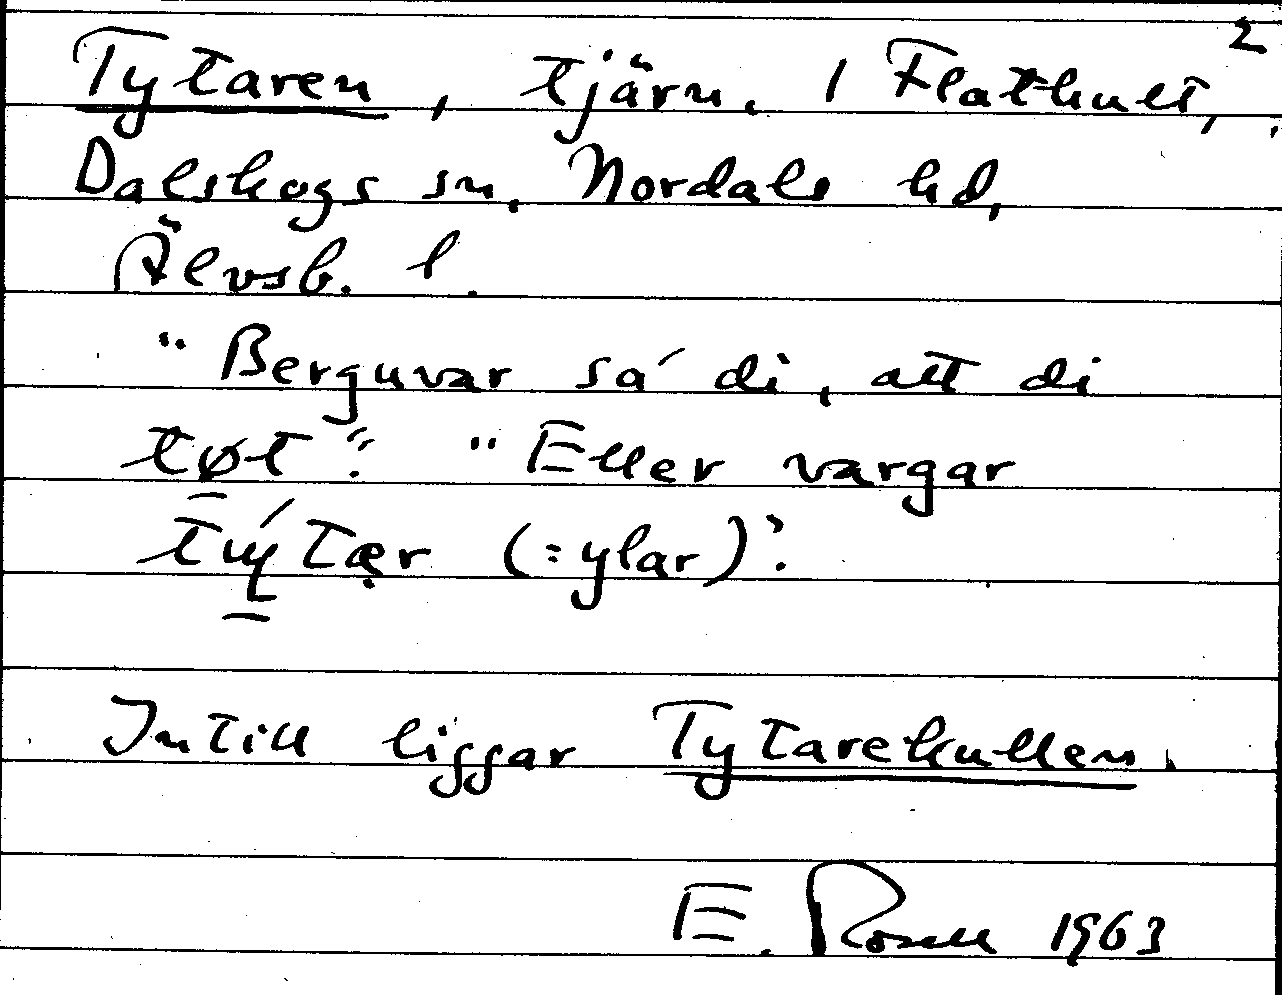 2
Tytaren, tjärn. I Flathult,
Dalskogs sn, Nordals hd,
Älvsb. l.
"Berguvar sa' di, att di
tøt". "Eller vargar
týtær (:ylar)".
Intill ligger Tytarekullen.
E. Rosell 1963